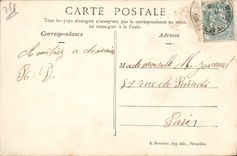 CARTE POSTALE
Tous les pays étrangers n'acceptent pas la correspondance au recto.
Se renseigner à la Poste.
Correspondance
Adresse
Amitiés à demain
Mademoiselle
51 rue de Paradis
Paris
A. Bourdier, imp. édit., Versailles.